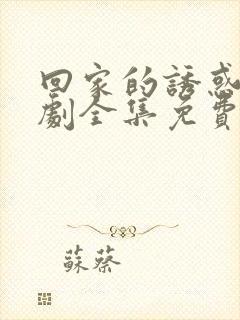 回家的誘惑
劇全集免費
蘇蔡